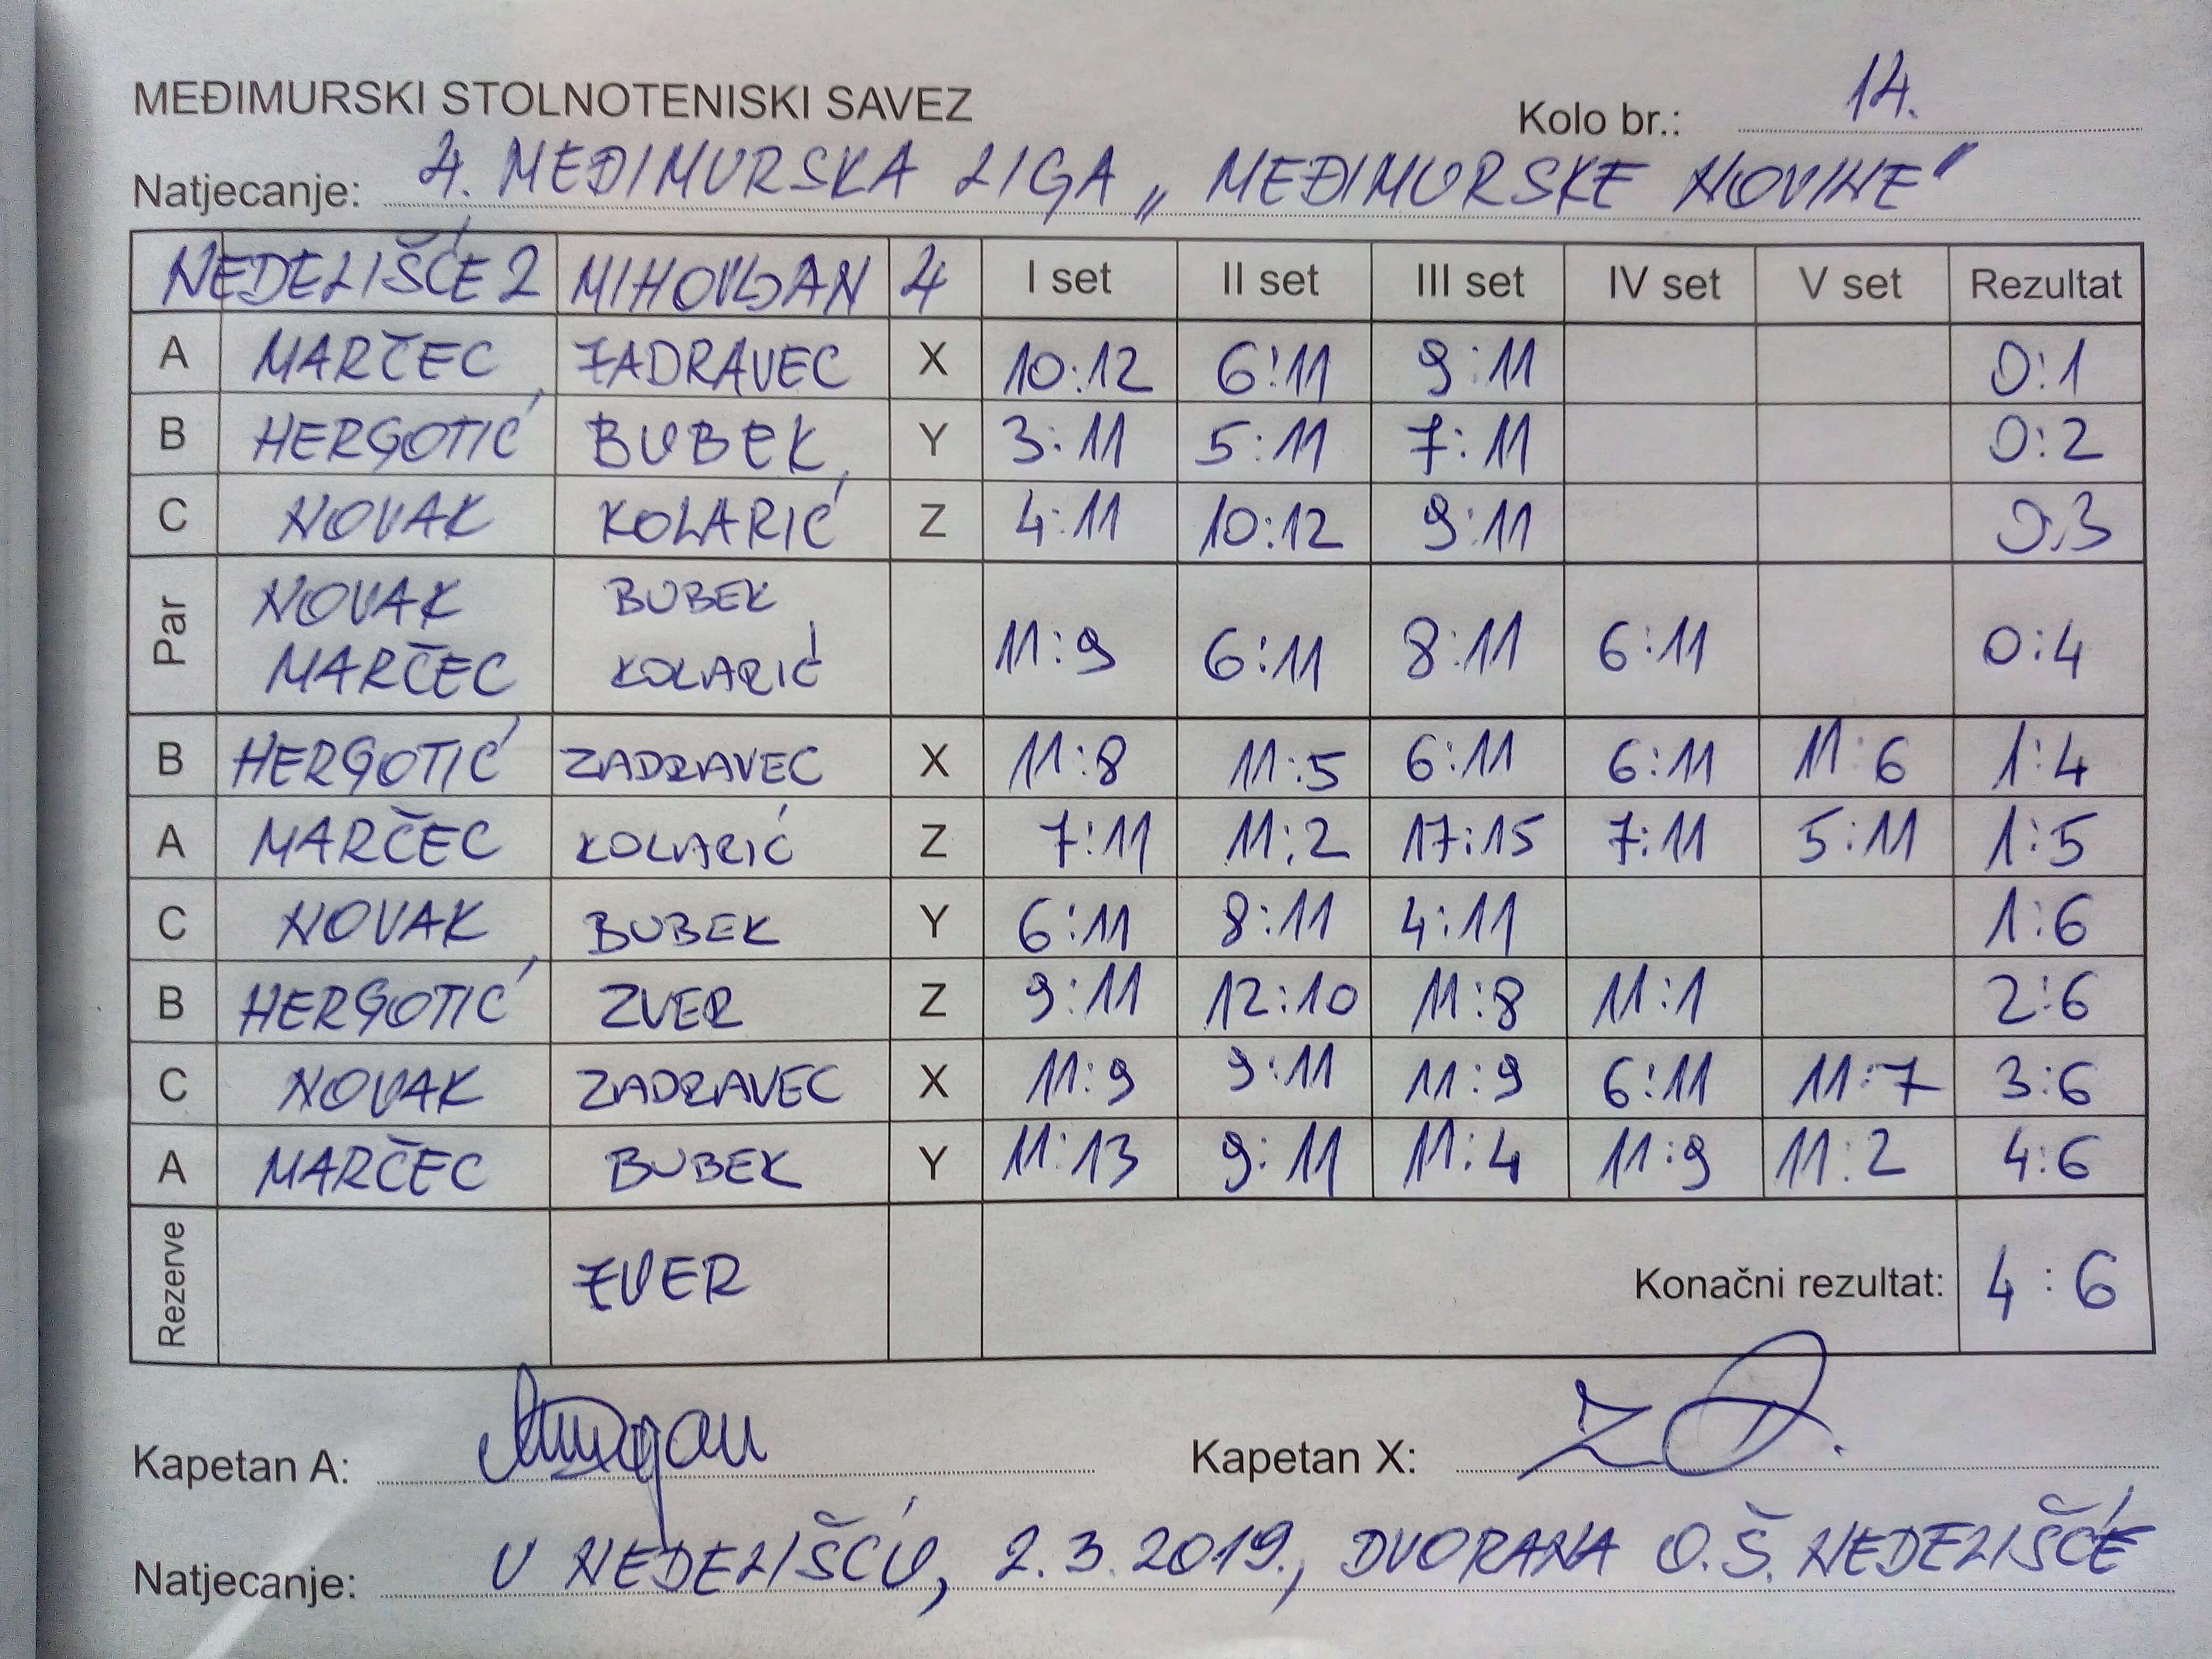 MEĐIMURSKI STOLNOTENISKI SAVEZ Kolo br.: 14.
Natjecanje: 4. MEĐIMURSKA LIGA „MEĐIMURSKE NOVINE"
NEDELIŠĆE 2 MIHOVLJAN 4 I set II set III set IV set V set Rezultat
A MARČEC ZADRAVEC X 10:12 6:11 9:11 0:1
B HERGOTIĆ BUBEK Y 3:11 5:11 7:11 0:2
C NOVAK KOLARIĆ Z 4:11 10:12 9:11 0:3
Par NOVAK MARČEC BUBEK KOLARIĆ 11:9 6:11 8:11 6:11 0:4
B HERGOTIĆ ZADRAVEC X 11:8 11:5 6:11 6:11 11:6 1:4
A MARČEC KOLARIĆ Z 7:11 11:2 17:15 7:11 5:11 1:5
C NOVAK BUBEK Y 6:11 8:11 4:11 1:6
B HERGOTIĆ ZVER Z 9:11 12:10 11:8 11:1 2:6
C NOVAK ZADRAVEC X 11:9 9:11 11:9 6:11 11:7 3:6
A MARČEC BUBEK Y 11:13 9:11 11:4 11:9 11:2 4:6
Rezerve ZVER Konačni rezultat: 4:6
Kapetan A: Kapetan X:
Natjecanje: U NEDELIŠĆU, 2.3.2019., DVORANA O.Š. NEDELIŠĆE